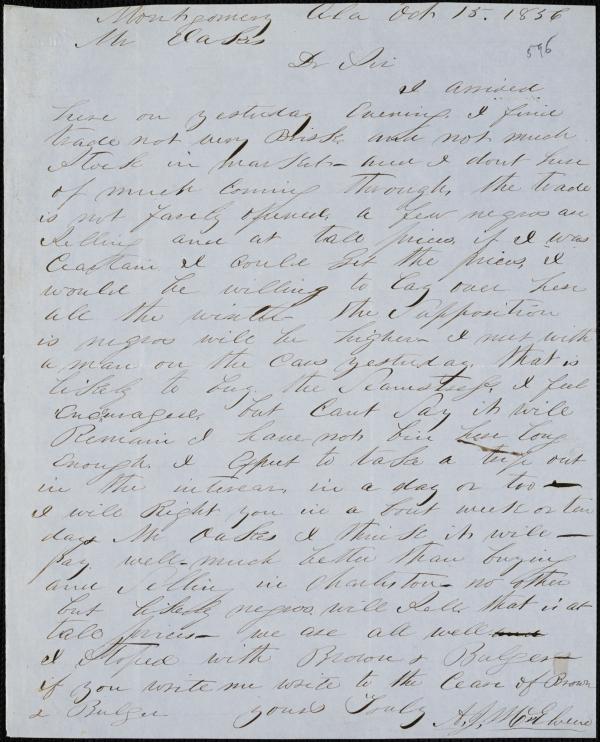 Montgomery Ala Oct 15. 1856
596
Mr Oakes
Dr Sir
I arrived
here on yesterday Evening. I find
trade not very Brisk and not much
Stock in market — and I dont hear
of much Coming through. the trade
is not farely opened. a few negros are
Selling and at tall prices. if I was
Ceartain I could Get the prices, I
would be willing to lay over here
all the winter — the Supposition
is negros will be higher — I met with
a man on the Cars yesterday that is
likely to buy the Seamstress I feel
Encouraged, but Cant Say it will
Remain I have not bin here long
Enough. I Expect to take a trip out
in the interear, in a day or too —
I will Right you in a bout week or ten
days Mr Oakes I think it will —
pay well — much better than buying
and Selling in Charleston — no other
but likely negros will Sell. that is at
tall prices — we are all well and
I Stoped with Brown & Bulger —
if you write me write to the Cear of Brown
& Bulger yours Truly A. J. McElveen